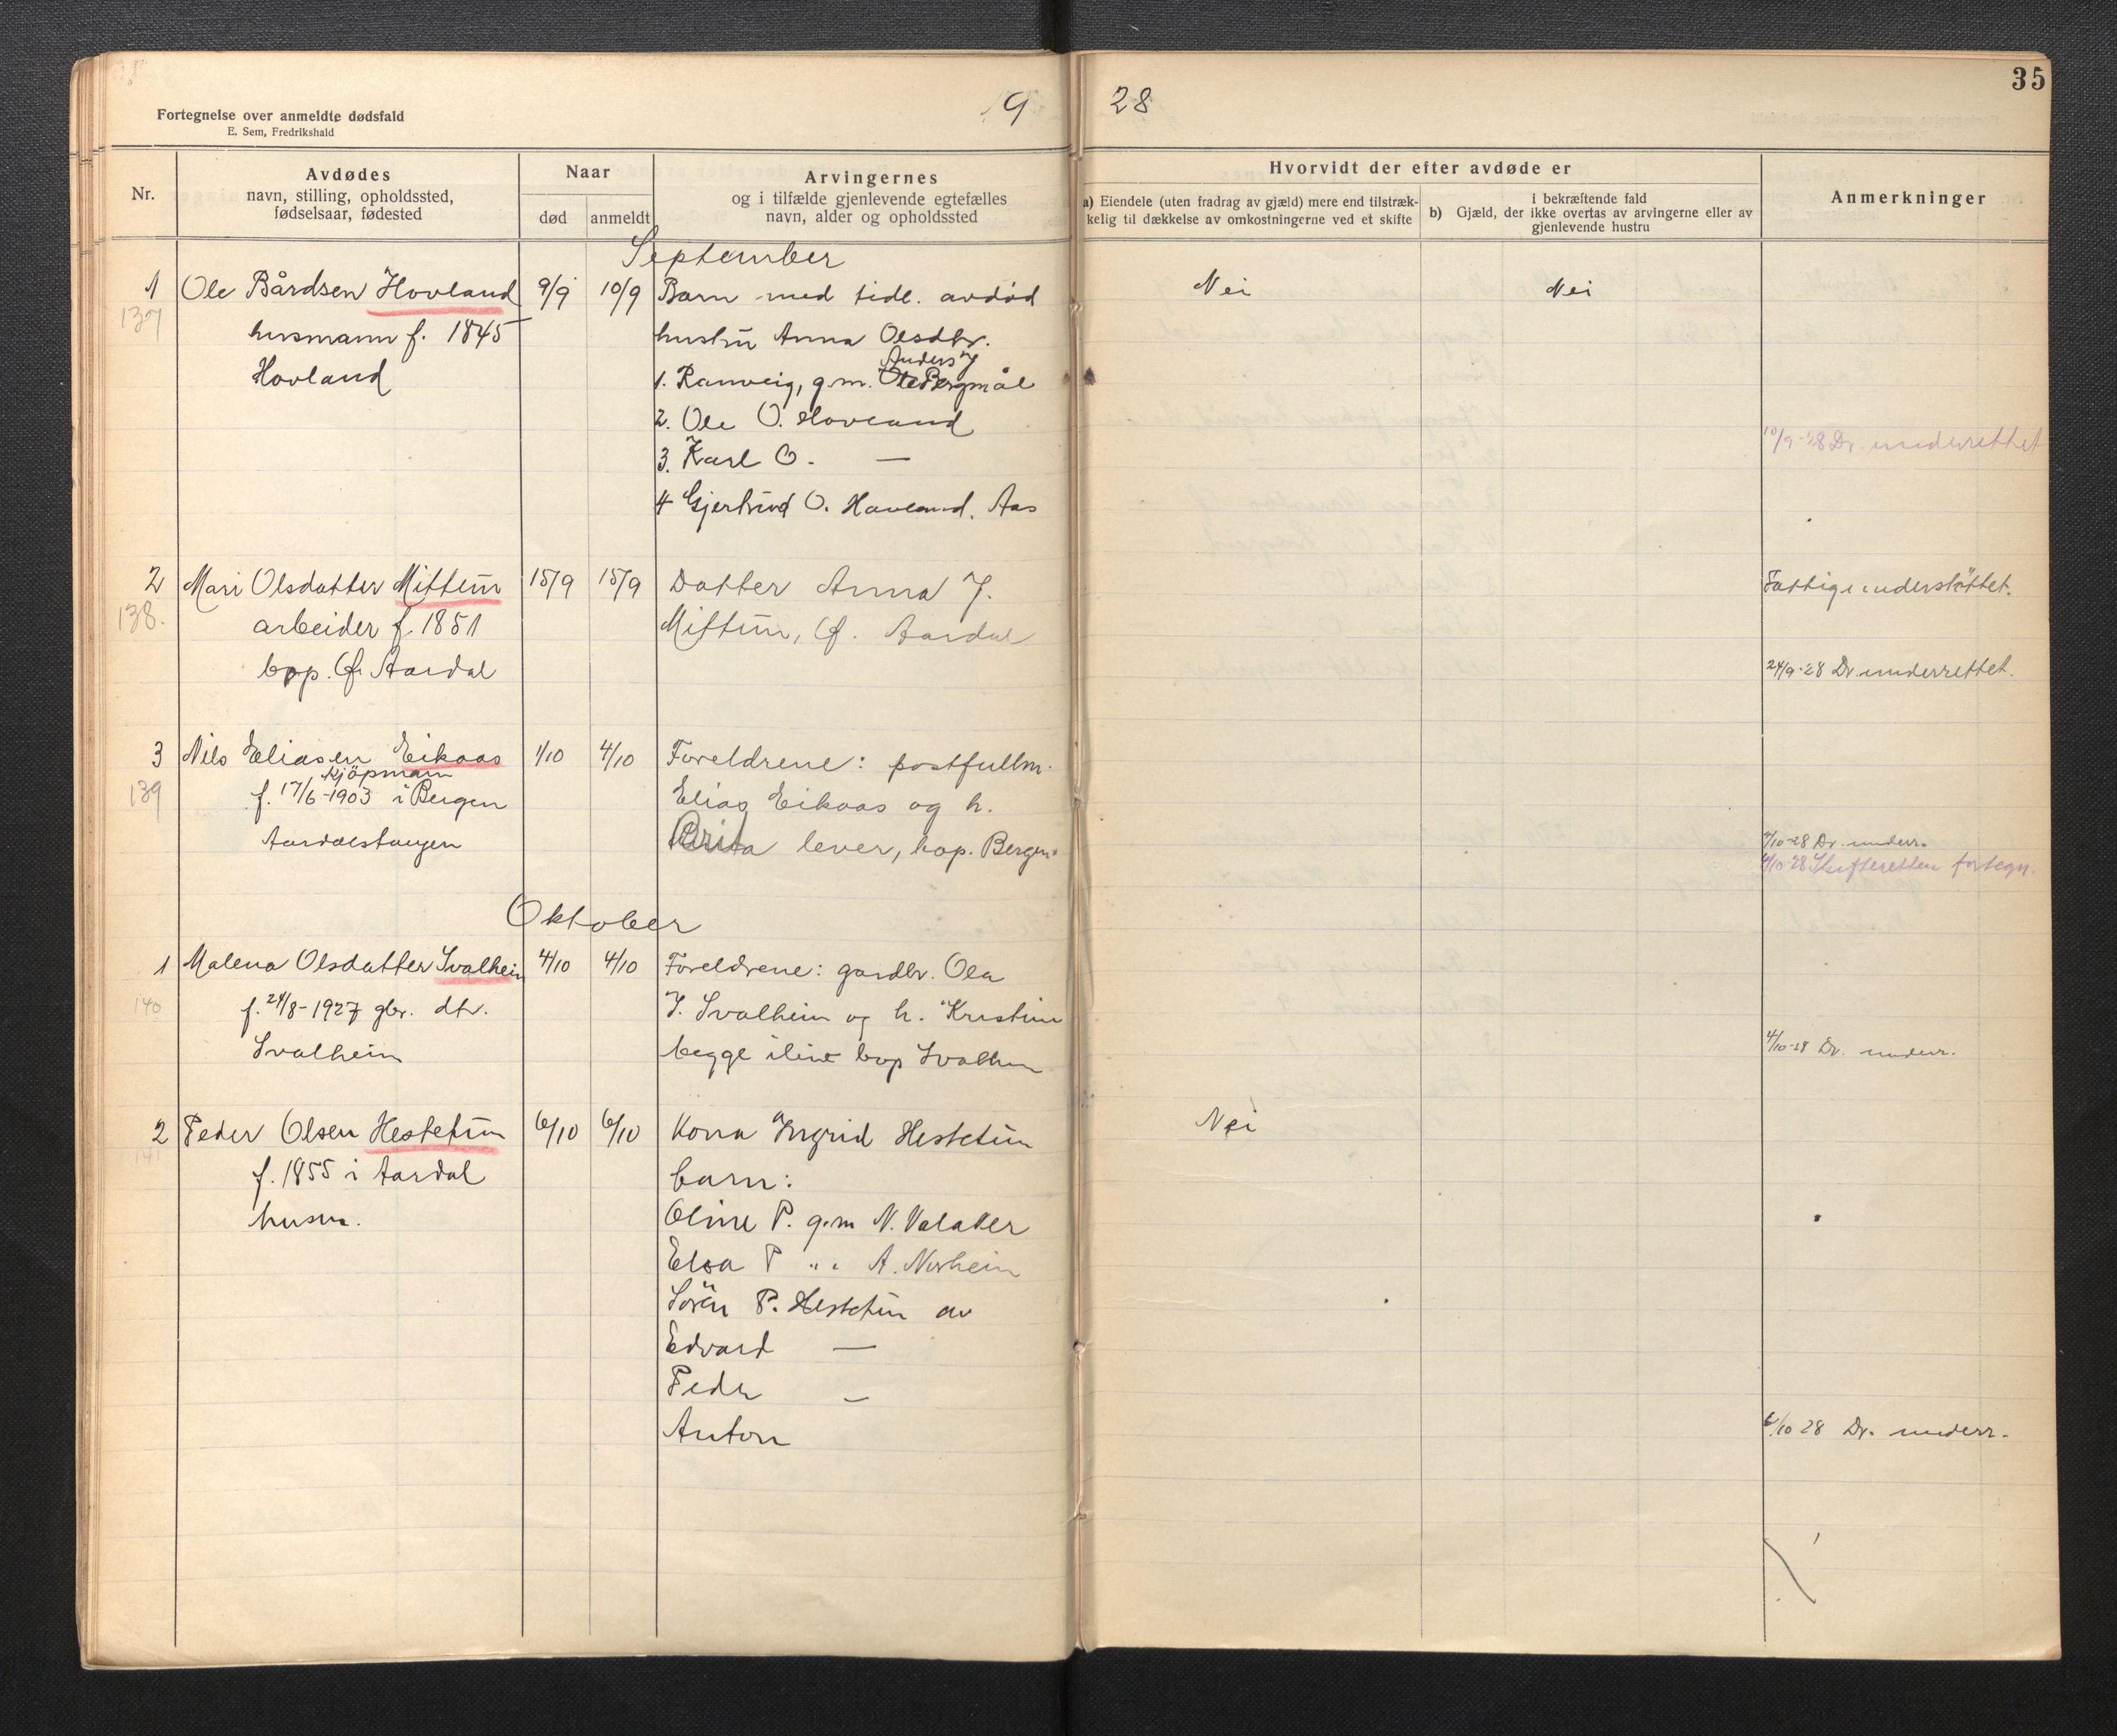 35
Fortegnelse over anmeldte dødsfald
E. Sem, Fredrikshald
19 28
Nr.
Avdødes
navn, stilling, opholdssted,
fødselsaar, fødested
Naar
død
anmeldt
Arvingernes
og i tilfælde gjenlevende egtefælles
navn, alder og opholdssted
Hvorvidt der efter avdøde er
a) Eiendele (uten fradrag av gjæld) mere end tilstræk-
kelig til dækkelse av omkostningerne ved et skifte
i bekræftende fald
b) Gjæld, der ikke overtas av arvingerne eller av
gjenlevende hustru
Anmerkninger
September
1 Ole Bårdsen Hovland 9/9 10/9 Barn med tidl. avdød Nei Nei
137
husmann f. 1845 hustru Anna Olsdtr.
Anders J
Hovland 1. Ranveig, g.m. Ole Bergmål
2. Ole O. Hovland
10/9-28 Dr. underrettet
3. Karl O. —
4 Gjertrud O. Hovland, Aas
2 Mari Olsdatter Mittun 15/9 15/9 Datter Anna J. Fattigunderstöttet.
138.
arbeider f. 1851 Mittun, Ø. Aardal
bop. Ø. Aardal 24/9-28 Dr. underrettet.
3 Nils Eliasen Eikaas 1/10 4/10 Foreldrene: postfullm.
kjöpmann
139 f. 17/6-1903 i Bergen Elias Eikaas og h.
Aardalstangen Brita lever, bop. Bergen.
4/10-28 Dr. underr.
4/10-28 Skifteretten fortegn.
Oktober
1 Malena Olsdatter Svalheim 4/10 4/10 Foreldrene: gardbr. Ola
140 f. 24/8-1927 gbr. dtr. J. Svalheim og h. Kristine
Svalheim begge ilive bop Svalheim 4/10-28 Dr. underr.
2 Peder Olsen Hestetun 6/10 6/10 Kona Ingrid Hestetun Nei
141
f. 1855 i Aardal barn:
husm. Oline P. g.m N. Valaker
Elsa P " " A. Norheim
Sören P. Hestetun av
Edvard —
Peder —
Anton 6/10 28 Dr. underr.